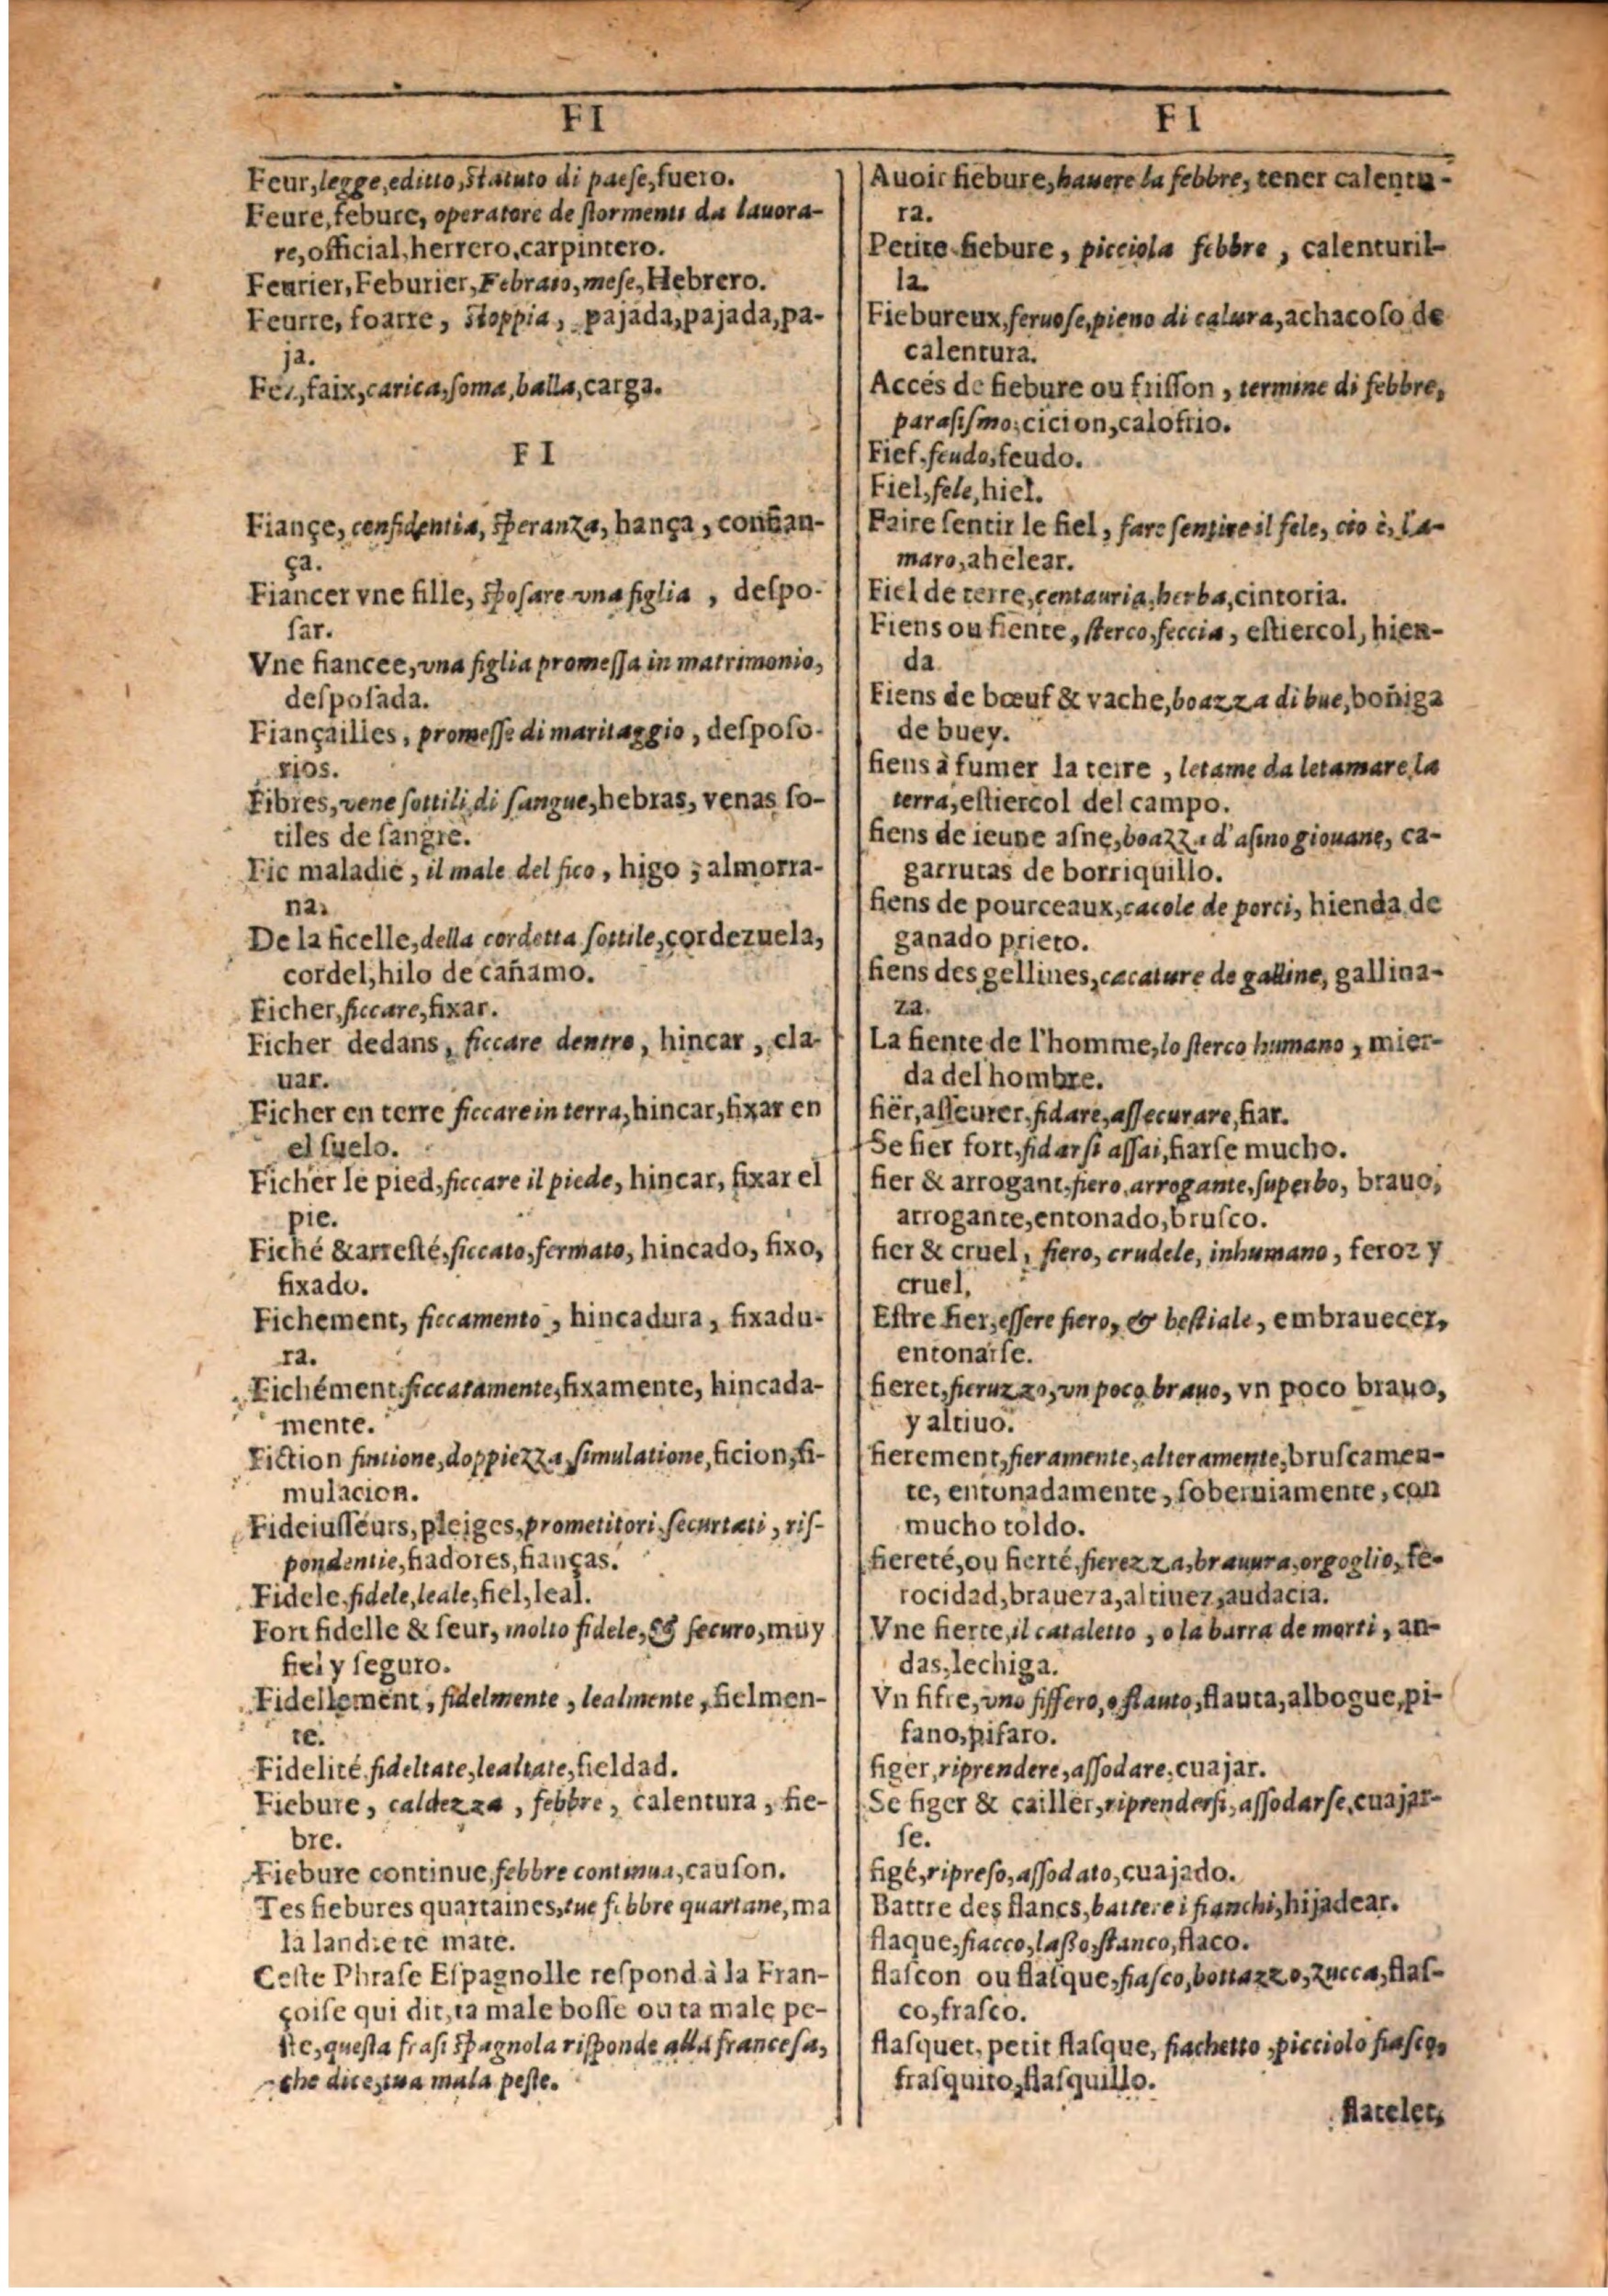 FI
Feur, legge, editto, statuto di paese, fuero.
Feure, febure, operatore de stormenti da lauora-
re, official, herrero, carpintero.
Feurier, Feburier, Febraio, mese, Hebrero.
Feurre, foarre, stoppia, pajada, pajada, pa-
ja.
Fez, faix, carica, soma, balla, carga.
FI
Fiançe, confidentia, speranza, hança, confian-
ça.
Fiancer vne fille, sposare vna figlia, despo-
sar.
Vne fiancee, vna figlia promessa in matrimonio,
desposada.
Fiançailles, promesse di maritaggio, desposo-
rios.
Fibres, vene sottili di sangue, hebras, venas so-
tiles de sangre.
Fic maladie, il male del fico, higo, almorra-
na.
De la ficelle, della cordetta sottile, cordezuela,
cordel, hilo de cañamo.
Ficher, ficcare, fixar.
Ficher dedans, ficcare dentro, hincar, cla-
uar.
Ficher en terre ficcare in terra, hincar, fixar en
el suelo.
Ficher le pied, ficcare il piede, hincar, fixar el
pie.
Fiché & arresté, ficcato, fermato, hincado, fixo,
fixado.
Fichement, ficcamento, hincadura, fixadu-
ra.
Fichément, ficcatamente, fixamente, hincada-
mente.
Fiction fintione, doppiezza, simulatione, ficion, si-
mulacion.
Fideiusseurs, pleiges, prometitori, securtati, ris-
pondentie, fiadores, fianças.
Fidele, fidele, leale, fiel, leal.
Fort fidelle & seur, molto fidele, & securo, muy
fiel y seguro.
Fidellement, fidelmente, lealmente, fielmen-
te.
Fidelité, fideltate, lealtate, fieldad.
Fiebure, caldezza, febbre, calentura, fie-
bre.
Fiebure continue, febbre continua, causon.
Tes fiebures quartaines, tue febbre quartane, ma
la landre te mate.
Ceste Phrase Espagnolle respond à la Fran-
çoise qui dit, ta male bosse ou ta male pe-
ste, questa frasi Spagnola risponde alla francesa,
che dice, tua mala peste.
FI
Auoir fiebure, hauere la febbre, tener calentu-
ra.
Petite fiebure, picciola febbre, calenturil-
la.
Fiebureux, feruose, pieno di calura, achacoso de
calentura.
Accés de fiebure ou frisson, termine di febbre,
parasismo, cicion, calofrio.
Fief, feudo, feudo.
Fiel, fele, hiel.
Faire sentir le fiel, fare sentire il fele, cio è, l'a-
maro, ahelear.
Fiel de terre, centauria, herba, cintoria.
Fiens ou fiente, sterco, feccia, estiercol, hien-
da
Fiens de bœuf & vache, boazza di bue, boñiga
de buey.
fiens à fumer la terre, letame da letamare la
terra, estiercol del campo.
fiens de ieune asne, boazza d'asino giouane, ca-
garrutas de borriquillo.
fiens de pourceaux, cacole de porci, hienda de
ganado prieto.
fiens des gellines, cacature de galline, gallina-
za.
La fiente de l'homme, lo sterco humano, mier-
da del hombre.
fiër, asseurer, fidare, assecurare, fiar.
Se fier fort, fidarsi assai, fiarse mucho.
fier & arrogant, fiero, arrogante, superbo, brauo,
arrogante, entonado, brusco.
fier & cruel, fiero, crudele, inhumano, feroz y
cruel,
Estre fier, essere fiero, & bestiale, embrauecer,
entonarse.
fieret, fieruzzo, vn poco brauo, vn poco brauo,
y altiuo.
fierement, fieramente, alteramente, bruscamen-
te, entonadamente, soberuiamente, con
mucho toldo.
fiereté, ou fierté, fierezza, brauura, orgoglio, fe-
rocidad, braueza, altiuez, audacia.
Vne fierte, il cataletto, o la barra de morti, an-
das, lechiga.
Vn fifre, vno fiffero, o flauto, flauta, albogue, pi-
fano, pifaro.
figer, riprendere, assodare, cuajar.
Se figer & cailler, riprendersi, assodarse, cuajar-
se.
figé, ripreso, assodato, cuajado.
Battre des flancs, battere i fianchi, hijadear.
flaque, fiacco, lasso, stanco, flaco.
flascon ou flasque, fiasco, bottazzo, zucca, flas-
co, frasco.
flasquet, petit flasque, fiachetto, picciolo fiasco,
frasquito, flasquillo.
flatelet,